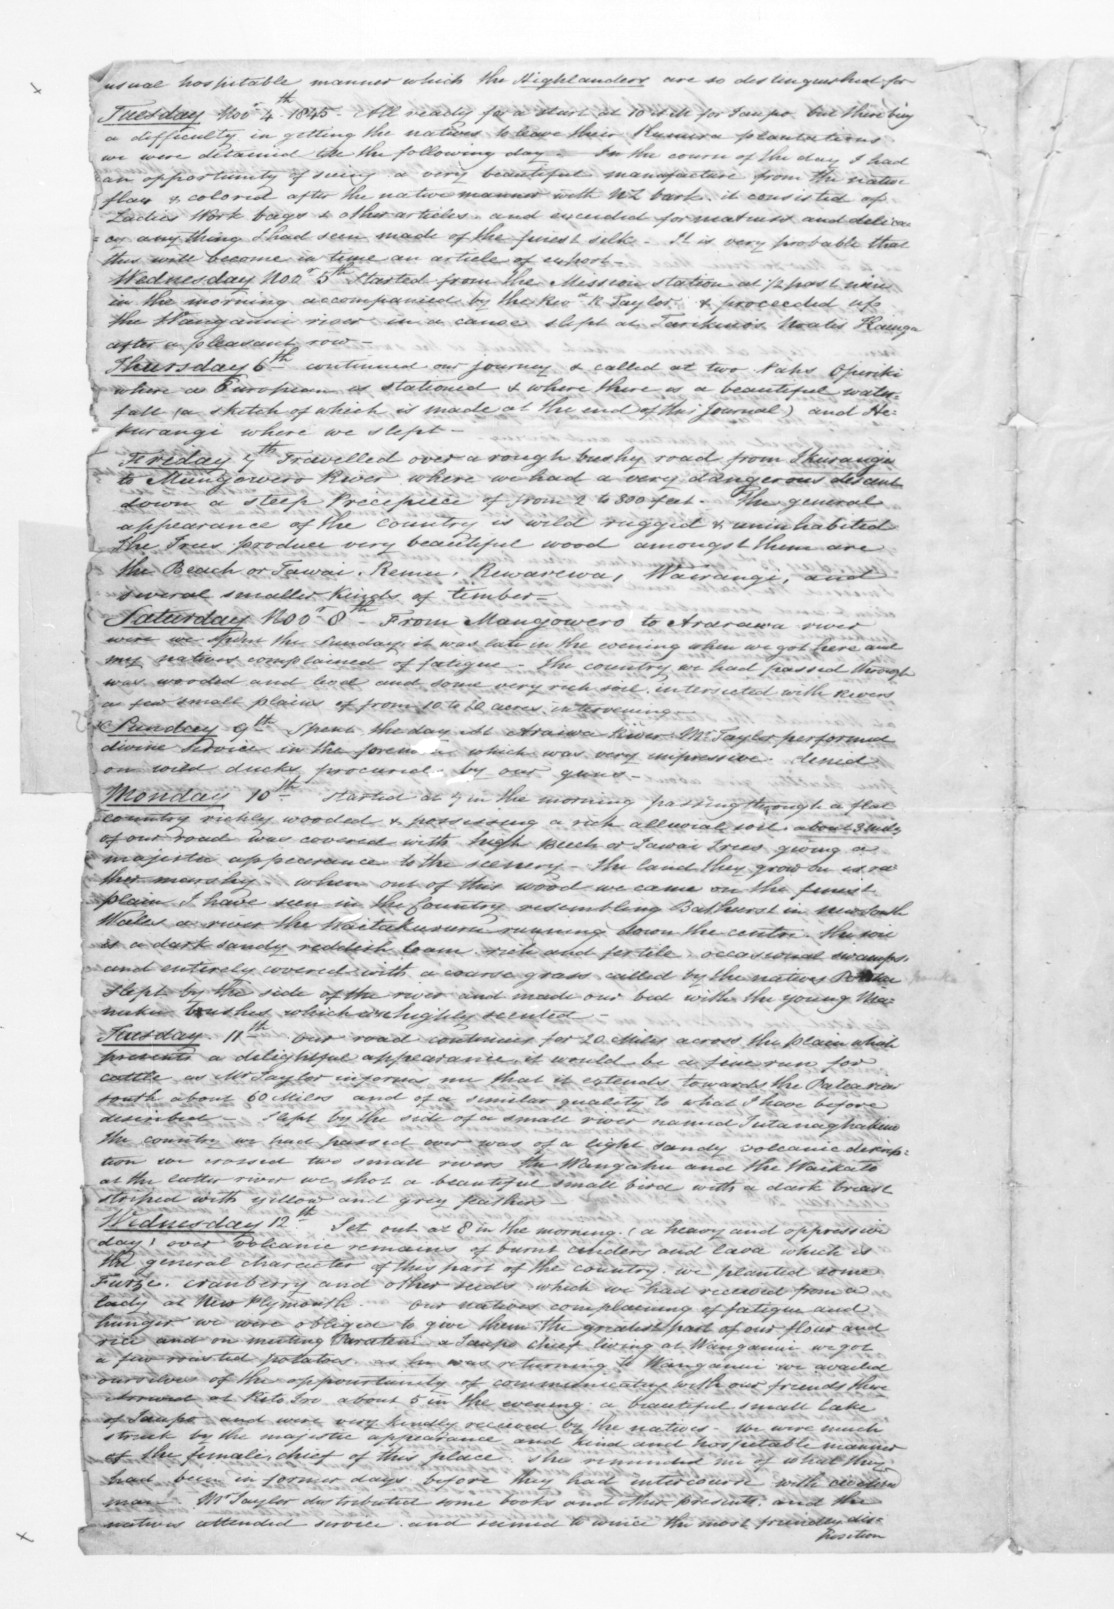 usual hospitable manner which the Highlanders are so distinguished for
Tuesday Novr 4th 1845 - All ready for a start at 10 A.M for Taupo but there being
a difficulty in getting the natives to leave their Kumera plantations
we were detained till the following day - In the course of the day I had
an opportunity of seeing a very beautiful manufacture from the native
flax & colored after the native manner with NZ bark. it consisted of
Ladies Work bags & other articles. and exceeded for neatness and delica-
cy any thing I had seen made of the finest silk - It is very probable that
this will become in time an article of export -
Wednesday Novr 5th Started from the Mission station at 1/2 past nine
in the morning accompanied by the Revd R Taylor & proceeded up
the Wanganui river in a canoe slept at
after a pleasant row -
Thursday 6th continued our journey & called at two Pahs Operiki
where a European is stationed & where there is a beautiful water-
fall (a sketch of which is made at the end of this Journal) and He-
kurangi where we slept -
Friday 7th Travelled over a rough bushy road from Ikurangi
to Mangowero River where we had a very dangerous descent
down a steep Precepiece of from 2 to 300 feet - The general
appearance of the country is wild rugged & uninhabited
The Trees produce very beautiful wood amongst them are
the Beach or Tawai, Remu, Rewarewa, Wairangi, and
several smaller kinds of timber -
Saturday Novr 8th - From Mangowero to Ararawa river
were we spent the Sunday, it was late in the evening when we got here and
my natives complained of fatigue - The country we had passed through
was wooded and level and some very rich soil intersected with Rivers
a few small plains of from 10 to 20 acres intervening -
Sunday 9th Spent the day at Araiwa River Mr Taylor performed
divine Service in the which was very impressive dined
on wild ducks procured by our guns -
Monday 10th started at 7 in the morning passing through a flat
country richly wooded & possessing a rich alluvial soil about 3 miles
of our road was covered with high Beech or Tawai Trees giving a
majestic appearance to the scenery - The land they grow on is ra-
ther marshy when out of this wood we came on the finest
plain I have seen in the Country resembling Bathurst in New South
Wales a river the running down the centre. The soil
is a dark sandy reddish loam rich and fertile occasional swamps.
and entirely covered with a coarse grass called by the natives
Slept by the side of the river and made our bed with the young Ma-
nuka brushes which are highly scented -
Tuesday 11th our road continues for 20 Miles across the plain which
presents a delightful appearance, it would be a fine run for
cattle as Mr Taylor informs me that it extends towards the
south about 60 Miles and of a similar quality to what I have before
described - Slept by the side of a small river named
the country we had passed over was of a light sandy volcanic descrip-
tion we crossed two small rivers the Wangahu and the Waikato
at the latter river we shot a beautiful small bird with a dark breast
striped with yellow and grey feathers -
Wednesday 12th Set out at 8 in the morning (a heavy and oppressive
day) over volcanic remains of burnt cinders and lava which is
the general character of this part of the country. we planted some
Furze. cranberry and other seeds which we had received from a
lady at New Plymouth. Our natives complaining of fatigue and
hunger we were obliged to give them the greatest part of our flour and
rice and on meeting a Taupo chief living at Wanganui we got
a few roasted potatoes. as he was returning to Wanganui we availed
ourselves of the opportunity of communicating with our friends there
arrived at about 5 in the evening. a beautiful small lake
of Taupo and were very kindly received by the natives. We were much
struck by the majestic appearance and kind and hospitable manner
of the female chief of this place she reminded me of what they
had been in former days before they had intercourse with civilized
man. Mr Taylor distributed some books and other presents. and the
natives attended service and seemed to evince the most friendly dis-
Position